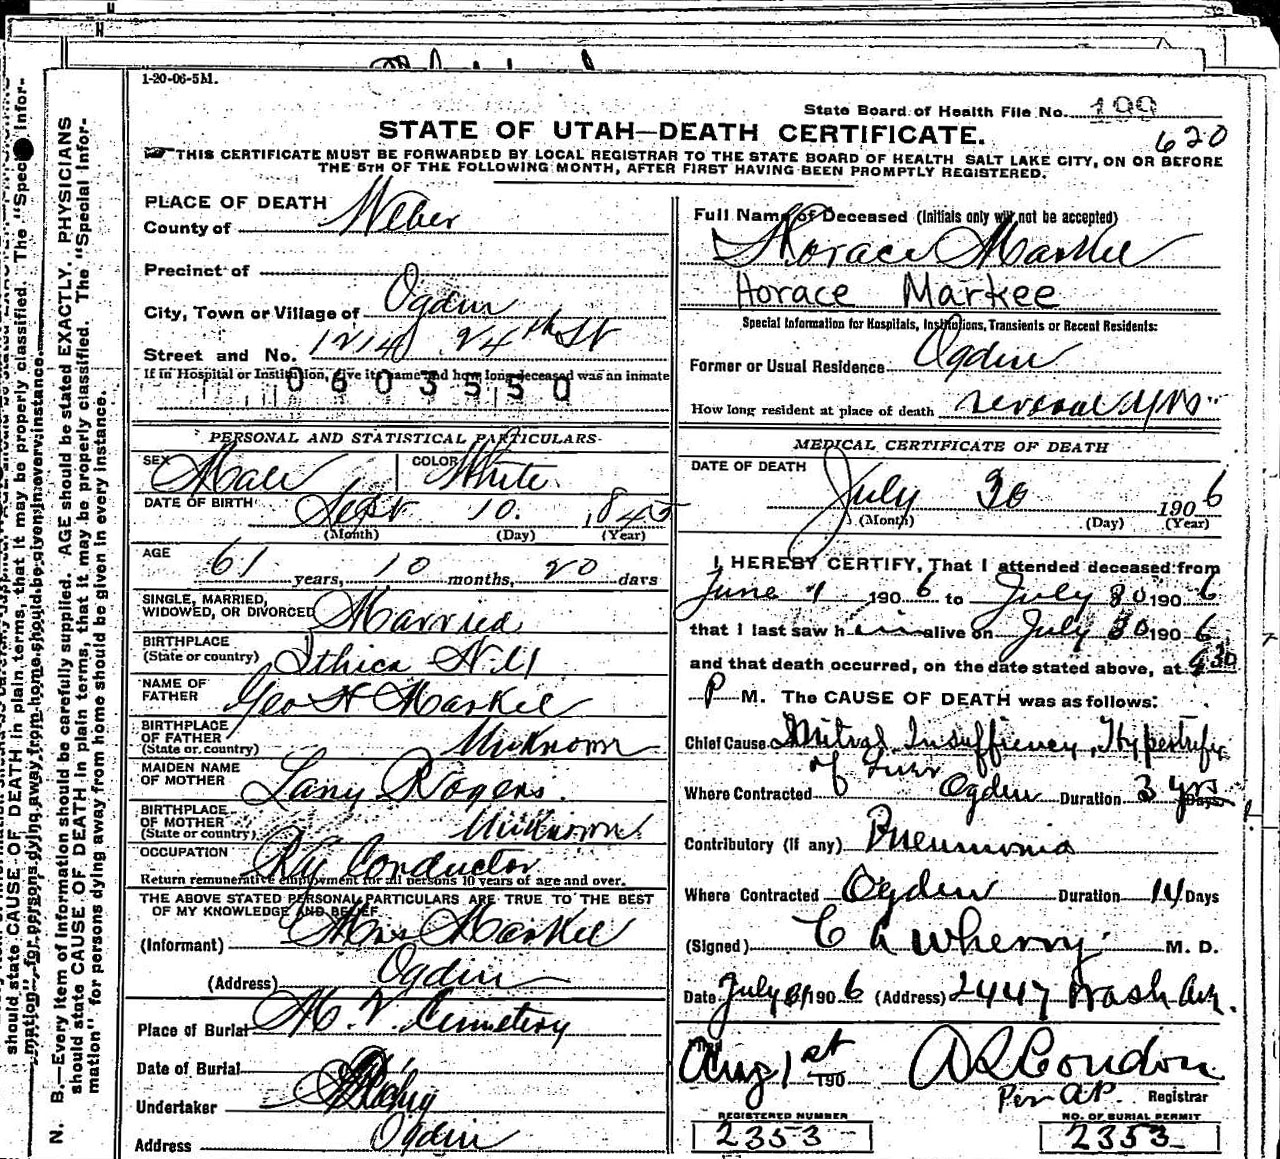 1-20-06-5M.
State Board of Health File No. 199
STATE OF UTAH—DEATH CERTIFICATE.
620
THIS CERTIFICATE MUST BE FORWARDED BY LOCAL REGISTRAR TO THE STATE BOARD OF HEALTH SALT LAKE CITY, ON OR BEFORE
THE 5TH OF THE FOLLOWING MONTH, AFTER FIRST HAVING BEEN PROMPTLY REGISTERED.
PLACE OF DEATH
County of Weber
Precinct of
City, Town or Village of Ogden
Street and No. 1214 24th St
If in Hospital or Institution, give its name and how long deceased was an inmate
0603550
PERSONAL AND STATISTICAL PARTICULARS
SEX Male COLOR White
DATE OF BIRTH Sept 10. 1845
(Month) (Day) (Year)
AGE 61 years, 10 months, 20 days
SINGLE, MARRIED,
WIDOWED, OR DIVORCED Married
BIRTHPLACE
(State or country) Ithica N.Y
NAME OF
FATHER Geo H Markee
BIRTHPLACE
OF FATHER
(State or country) Unknown
MAIDEN NAME
OF MOTHER Lany Rogers.
BIRTHPLACE
OF MOTHER
(State or country) Unknown
OCCUPATION Ry Conductor
Return remunerative employment for all persons 10 years of age and over.
THE ABOVE STATED PERSONAL PARTICULARS ARE TRUE TO THE BEST
OF MY KNOWLEDGE AND BELIEF
(Informant) Mrs Markee
(Address) Ogden
Place of Burial M. V. Cemetery
Date of Burial
Undertaker
Address Ogden
Full Name of Deceased (Initials only will not be accepted)
Horace Markee
Horace Markee
Special Information for Hospitals, Institutions, Transients or Recent Residents:
Former or Usual Residence Ogden
How long resident at place of death several yrs
MEDICAL CERTIFICATE OF DEATH
DATE OF DEATH
July 30 1906
(Month) (Day) (Year)
I HEREBY CERTIFY, That I attended deceased from
June 1 1906 to July 30 1906
that I last saw him alive on July 30 1906
and that death occurred, on the date stated above, at 4 30
P M. The CAUSE OF DEATH was as follows:
Chief Cause Mitral Insuffiency, Hypertrofy
of Liver
Where Contracted Ogden Duration 3 yrs Days
Contributory (If any) Pneumonia
Where Contracted Ogden Duration 14 Days
(Signed) C A Wherry M. D.
Date July 31 1906 (Address) 2447 Wash Ave.
Filed
Aug 1st 190 A L Condon
Per A.P. Registrar
REGISTERED NUMBER
2353
NO. OF BURIAL PERMIT
2353
N. B.—Every item of information should be carefully supplied. AGE should be stated EXACTLY. PHYSICIANS
should state CAUSE OF DEATH in plain terms, that it may be properly classified. The "Special Infor-
mation" for persons dying away from home should be given in every instance.
should state CAUSE OF DEATH in plain terms, that it may be properly classified. The "Special Infor-
mation" for persons dying away from home should be given in every instance.